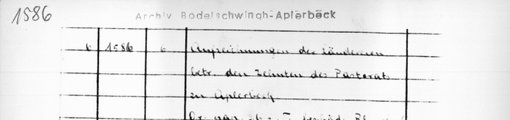 1586
Archiv Bodelschwingh-Aplerbeck
6 1586 6 Aufzeichnungen der Ländereien
betr. den Zeinten des Pastorats
zu Aplerbeck